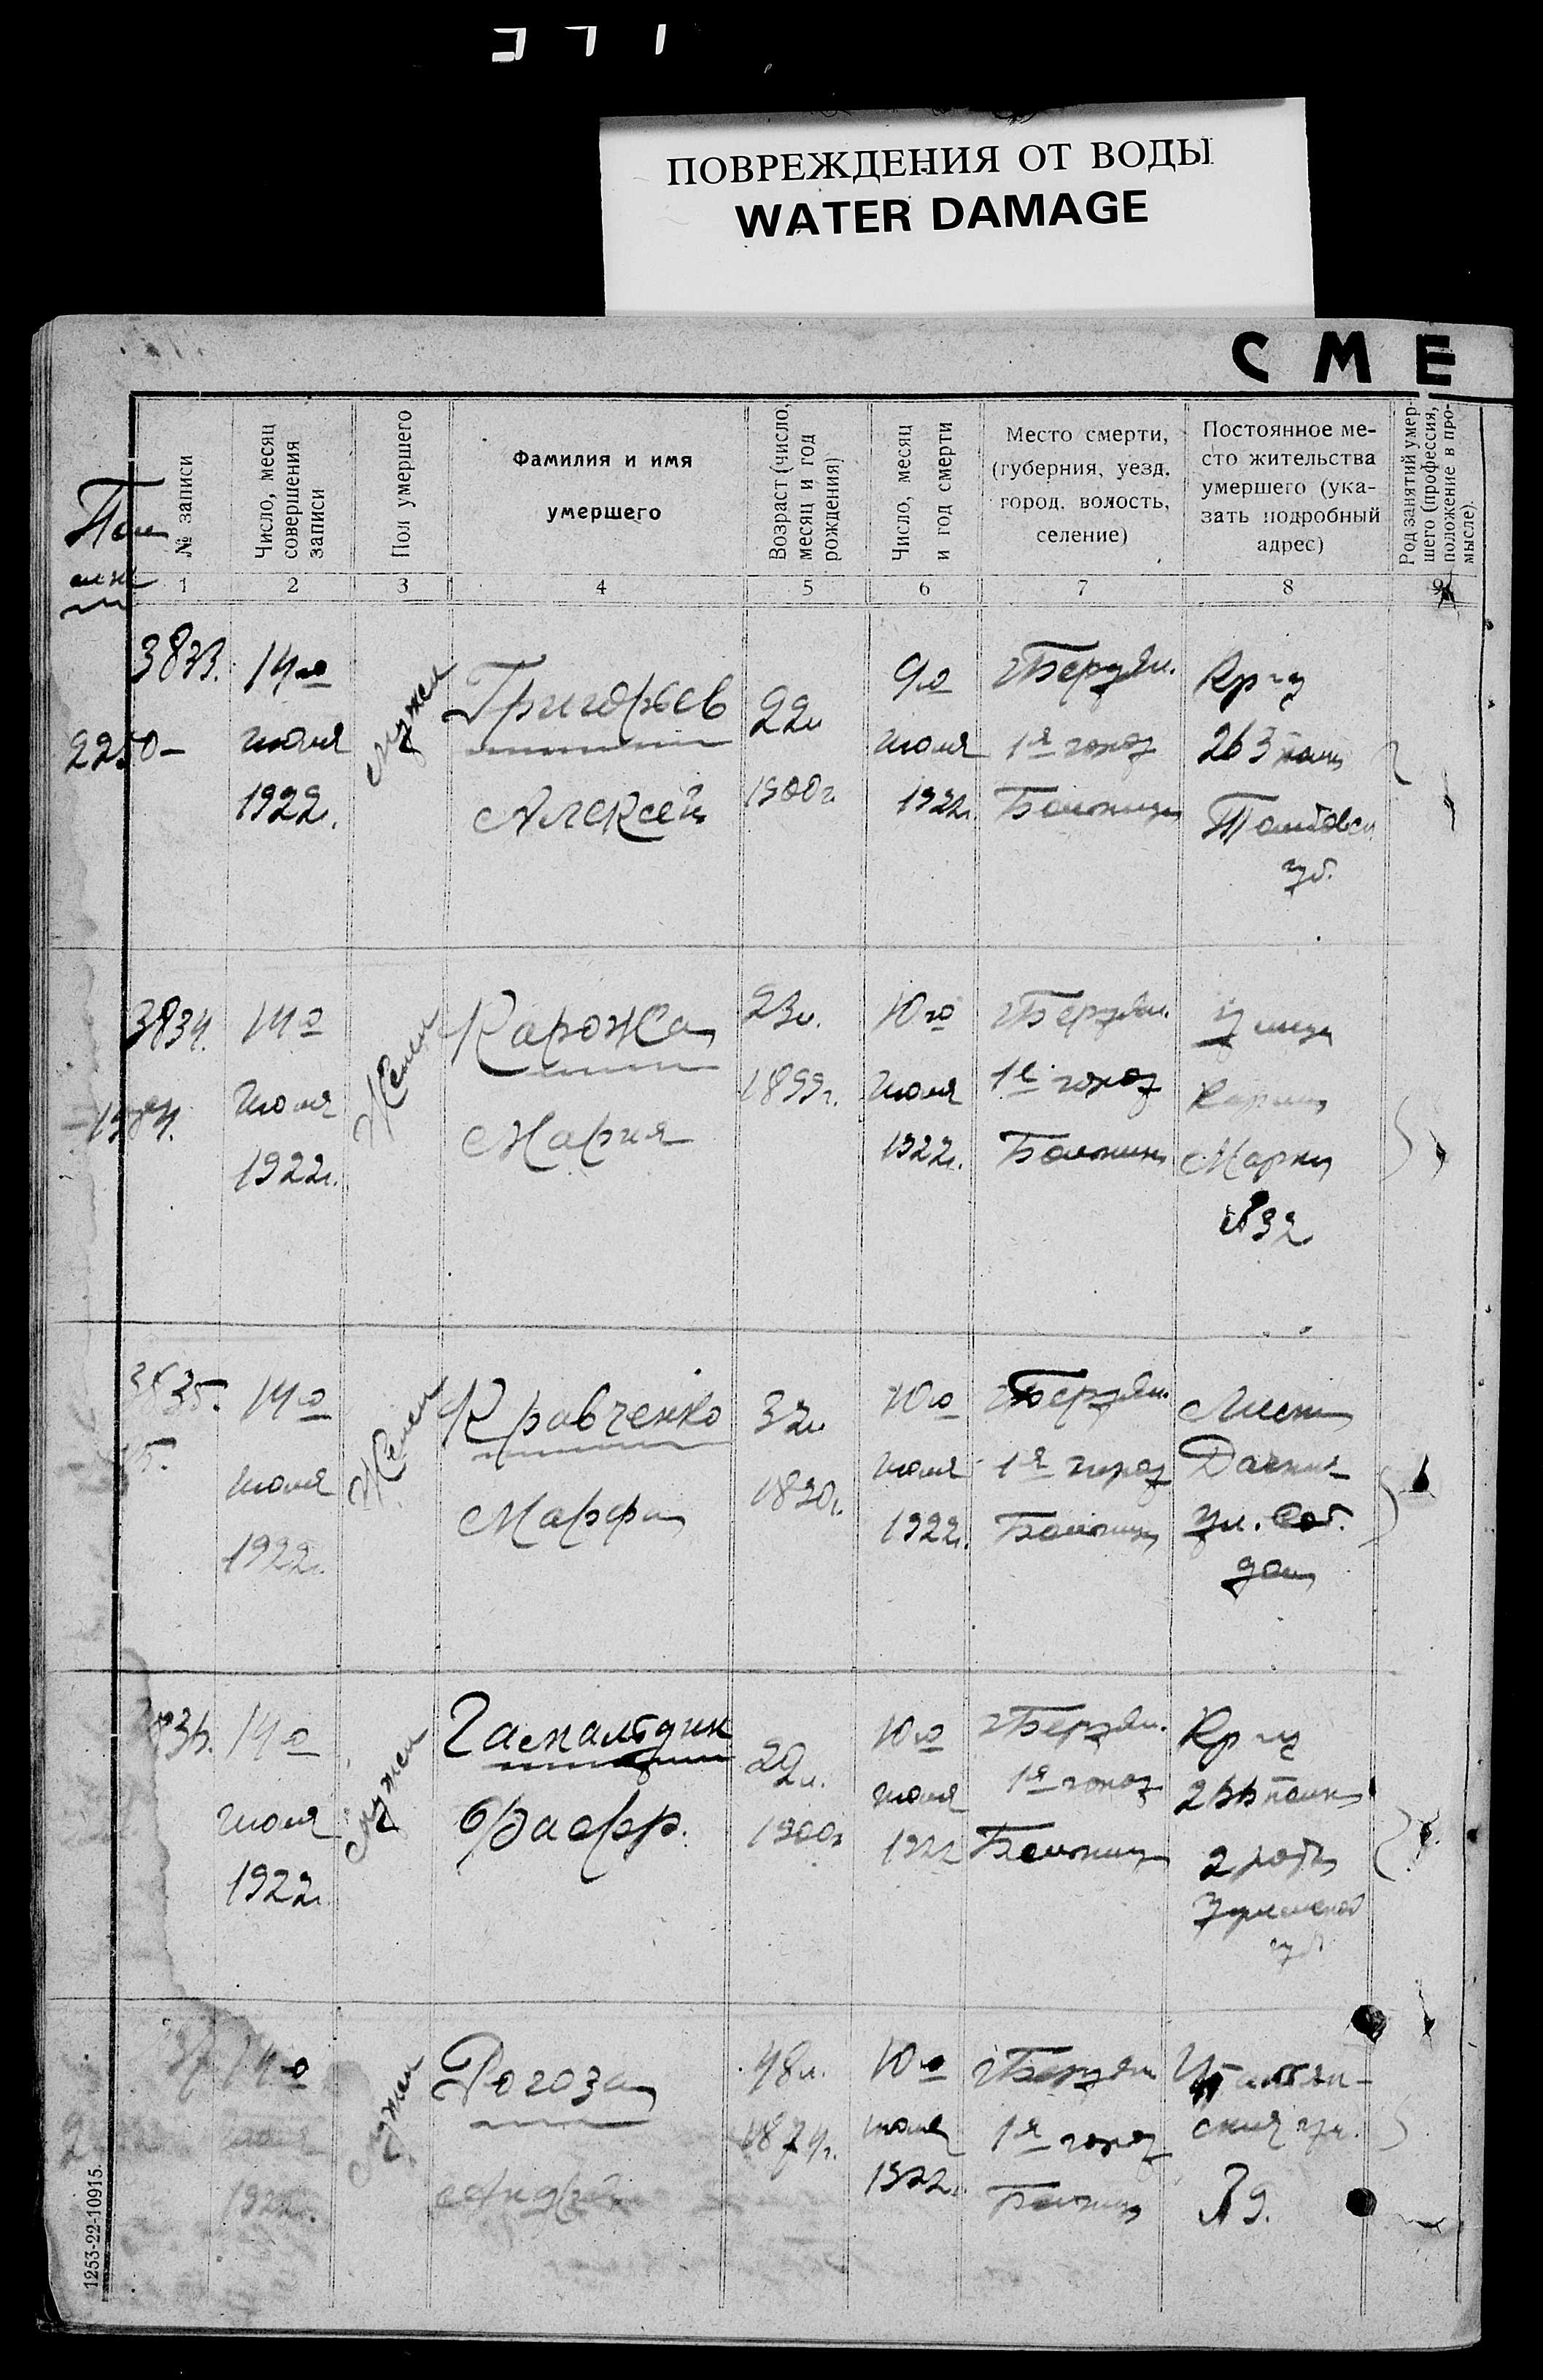 ПОВРЕЖДЕНИЯ ОТ ВОДЫ
WATER DAMAGE
С М Е
№ записи
Число, месяц
совершения
записи
Пол умершего
Фамилия и имя
умершего
Возраст (число,
месяц и год
рождения)
Число, месяц
и год смерти
Место смерти,
(губерния, уезд,
город, волость,
селение)
Постоянное ме-
сто жительства
умершего (ука-
зать подробный
адрес)
Род занятий умер-
шего (профессия,
положение в про-
мысле).
1 2 3 4 5 6 7 8 9
3833.
2250-
14го
июля
1922г.
мужск
Григорьев
Алексей
22л
1900г.
9го
июля
1922г.
г Бердян.
1я город
Больница
Кр-ц
263 полк
губ.
3834.
1984.
14го
Июля
1922г.
Женск
Карожа
Мария
23л.
1899г.
10го
Июля
1922г.
г Бердян.
1я город
Больниц
улица
Карла
Маркса
№32
3835.
14го
июля
1922г.
Женск
Кравченко
Марфа
32л
1890г.
10го
июля
1922г.
г Бердян.
1я город
Больниц
ул. Соб.
дом
836.
14го
июля
1922г.
мужск
Гасмалтдин
29л.
1900г
10го
июля
1922
г Бердян.
1я город
Больниц
Кр-ц
2 рота
губ
37
14го
июля
1922г.
мужск
Рогоза
Андрей
48л.
1874г.
10го
июля
1922г.
г Бердян
1я город
Больниц
Итальян-
ская ул.
№9.
1253-22-10915.